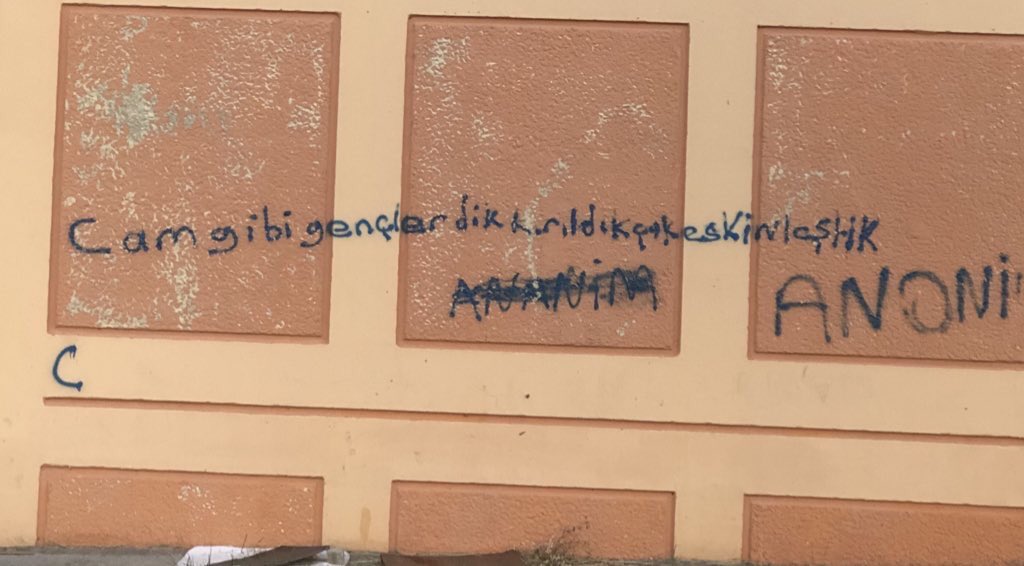 Cam gibi gençlerdik kırıldıkça keskinleştik
ANANİM
ANONİ
C